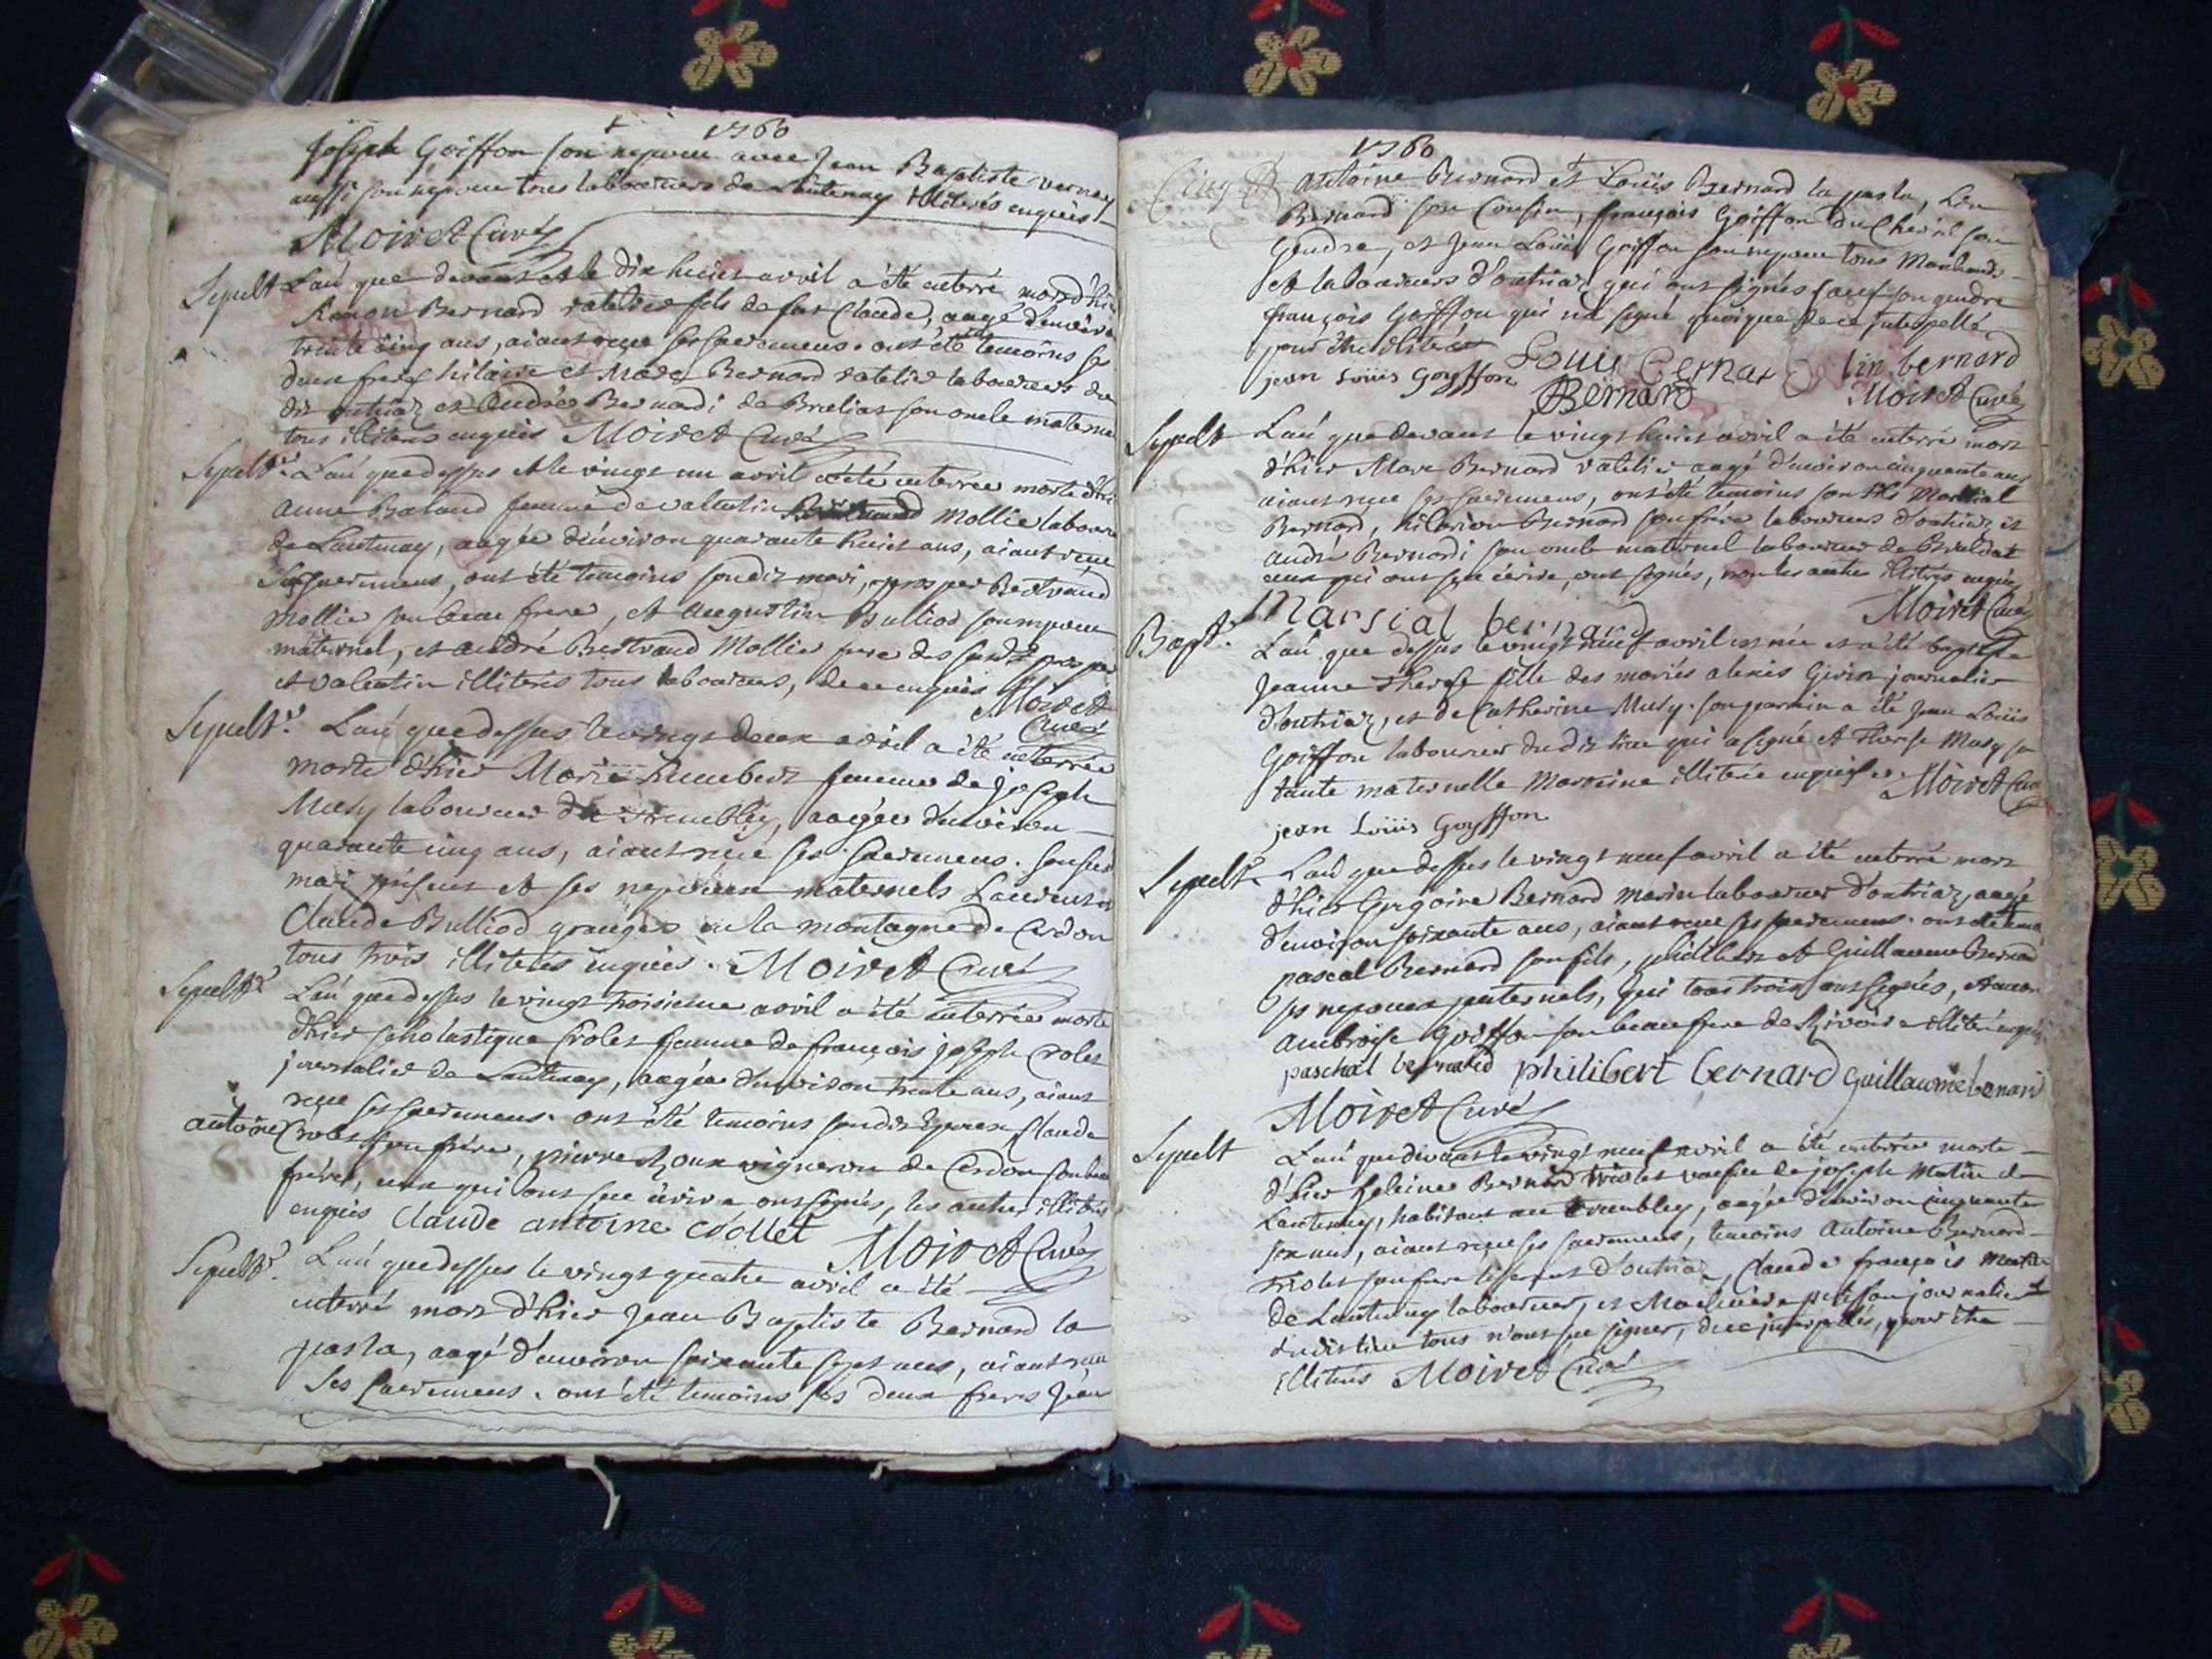 1760
Joseph Goiffon son nepveu avec Jean Baptiste vernay
aussi son nepveu tous laboureurs de Lantenay illiterés enquis
Moiret Curé
Sepult. L'an que devant et le dix huict avril a été enterré mort d'hier
Bernard ratelier fils de feu Claude, aagé d'environ
trente cinq ans, aiant reçu ses sacremens. ont été temoins ses
deux freres hilaire et Marc Bernard ratelier laboureurs du
dit outriaz et André Bernardi de son oncle maternel
tous illiterés enquis Moiret Curé
Sepult.r L'an que dessus et le vingt un avril a été enterrée morte d'hier
anne Baland femme de vallentin Mollie laboureur
de Lantenay, aagée d'environ quarante huict ans, aiant reçue
ses sacremens, ont été temoins son dit mari, prosper Bertrand
Mollie son beau frere, et augustin Bulliod son nepveu
maternel, et andré Bertrand Mollie pere des susd. prosper
et valentin illiterés tous laboureurs, de ce enquis Moiret
Curé
Sepult.r L'an que dessus le vingt deux avril a été enterrée
morte d'hier Marie humbert femme de joseph
Musy laboureur du trembley, aagée d'environ
quarante cinq ans, aiant reçue ses sacremens. son sus
mari présent et ses nepveux maternels Laurent et
Claude Bulliod granger en la montagne de Cerdon
tous trois illiterés enquis. Moiret Curé
Sepult.r L'an que dessus le vingt troisieme avril a été enterrée morte
d'hier scholastique Crolet femme de françois joseph Crolet
journalier de Lantenay, aagée d'environ trente ans, aiant
reçue ses sacremens. ont été temoins son dit Epoux, Claude
antoine Crolet son frère, pierre vigneron de Cerdon son beau
frère, ceux qui ont sçu écrire ont signés, les autres illiterés
enquis Claude antoine crollet Moiret Curé
Sepult.r L'an que dessus le vingt quatre avril a été
enterré mort d'hier Jean Baptiste Bernard la
pasta, aagé d'environ soixante sept ans, aiant reçu
ses sacremens. ont été temoins ses deux freres Jean
1760
antoine Bernard et Loüis Bernard la pasta, Lin
Bernard son Cousin, françois Goiffon du Chevril son
Gendre, et Jean Loüis Goiffon son nepveu tous Marchands
et laboureurs d'outriaz qui ont signés sauf son gendre
françois Goiffon qui n'a signé quoique de ce interpellé
pour être illiteré
Louis Bernard lin bernard
jean Loüis Goyffon Bernard Moiret Curé
Sepult L'an que devant le vingt huict avril a été enterré mort
d'hier Marc Bernard ratelier aagé d'environ cinquante ans
aiant reçu ses sacremens, ont été temoins son fils Martial
Bernard, hilarion Bernard son frère laboureurs d'outriaz et
andré Bernardi son oncle maternel laboureur de
ceux qui ont sçu écrire, ont signés, non les autres illiterés enquis
Marsial bernard Moiret Curé
Bapt.r L'an que dessus le vingt neuf avril est née et a été baptisée
Jeanne Therese fille des mariés alexis Girin journalier
d'outriaz, et de Catherine Musy. son parrain a été Jean Loüis
Goiffon laboureur dudit lieu qui a signé et Therese Musy sa
tante maternelle Marraine illiterée enquise. Moiret Curé
jean Loüis Goyffon
Sepult.r L'an que dessus le vingt neuf avril a été enterré mort
d'hier Gregoire Bernard laboureur d'outriaz, aagé
d'environ soixante ans, aiant reçu ses sacremens. ont été temoins
pascal Bernard son fils, philibert et Guillaume Bernard
ses nepveux paternels, qui tous trois ont signés, et
ambroise Goiffon son beau frere de illiteré enquis
paschal bernard philibert bernard Guillaume bernard
Moiret Curé
Sepult L'an que devant le vingt neuf avril a été enterrée morte
d'hier Bernard triolet veufve de joseph Matin de
Lantenay, habitant au tremblay, aagée d'environ cinquante
six ans, aiant reçue ses sacremens, temoins Antoine Bernard
triolet son frere tisserant d'outriaz, Claude françois
de Lantenay laboureur, et journalier
dudit lieu tous n'ont sçu signer, de ce interpellés, pour être
illiterés Moiret Curé